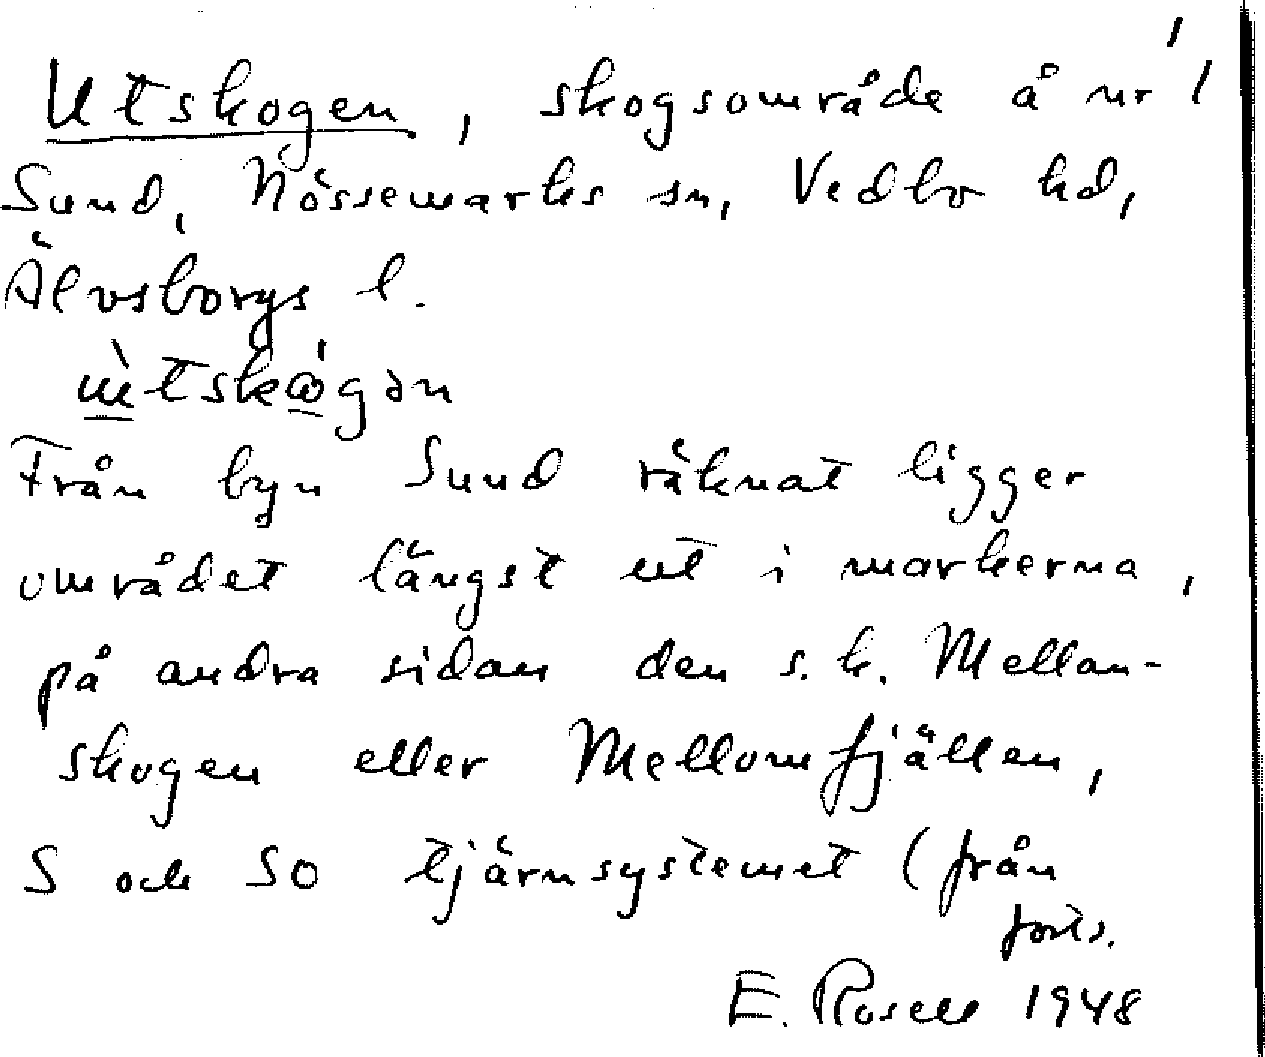 1
Utskogen, skogsområde å nr 1
Sund, Nössemarks sn, Vedbo hd,
Älvsborgs l.
Från byn Sund räknat ligger
området längst ut i markerna,
på andra sidan den s.k. Mellan-
skogen eller Mellomfjällen,
S och SO tjärnsystemet (från
forts.
E. Rosell 1948